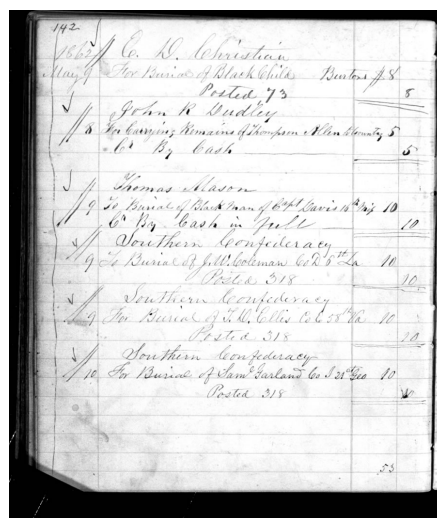 142
1862 // E. D. Christian
May 9 For Burial of Black Child Burtons fr. 8
Posted 73 8
// John R Dudley
8 For Carrying Remains of Thompson Allen to County 5
Cr By Cash 5
// Thomas Mason
9 To Burial of Black man of Capt Davis 16th Mix 10
Cr By Cash in full 10
// Southern Confederacy
9 To Burial of J. W. Coleman Co D 5th La 10
Posted 318 10
// Southern Confederacy
9 For Burial of T. W. Ellis Co C 58th Va 10
Posted 318 10
// Southern Confederacy
10 For Burial of Saml Garland Co I 21st Geo 10
Posted 318 10
53